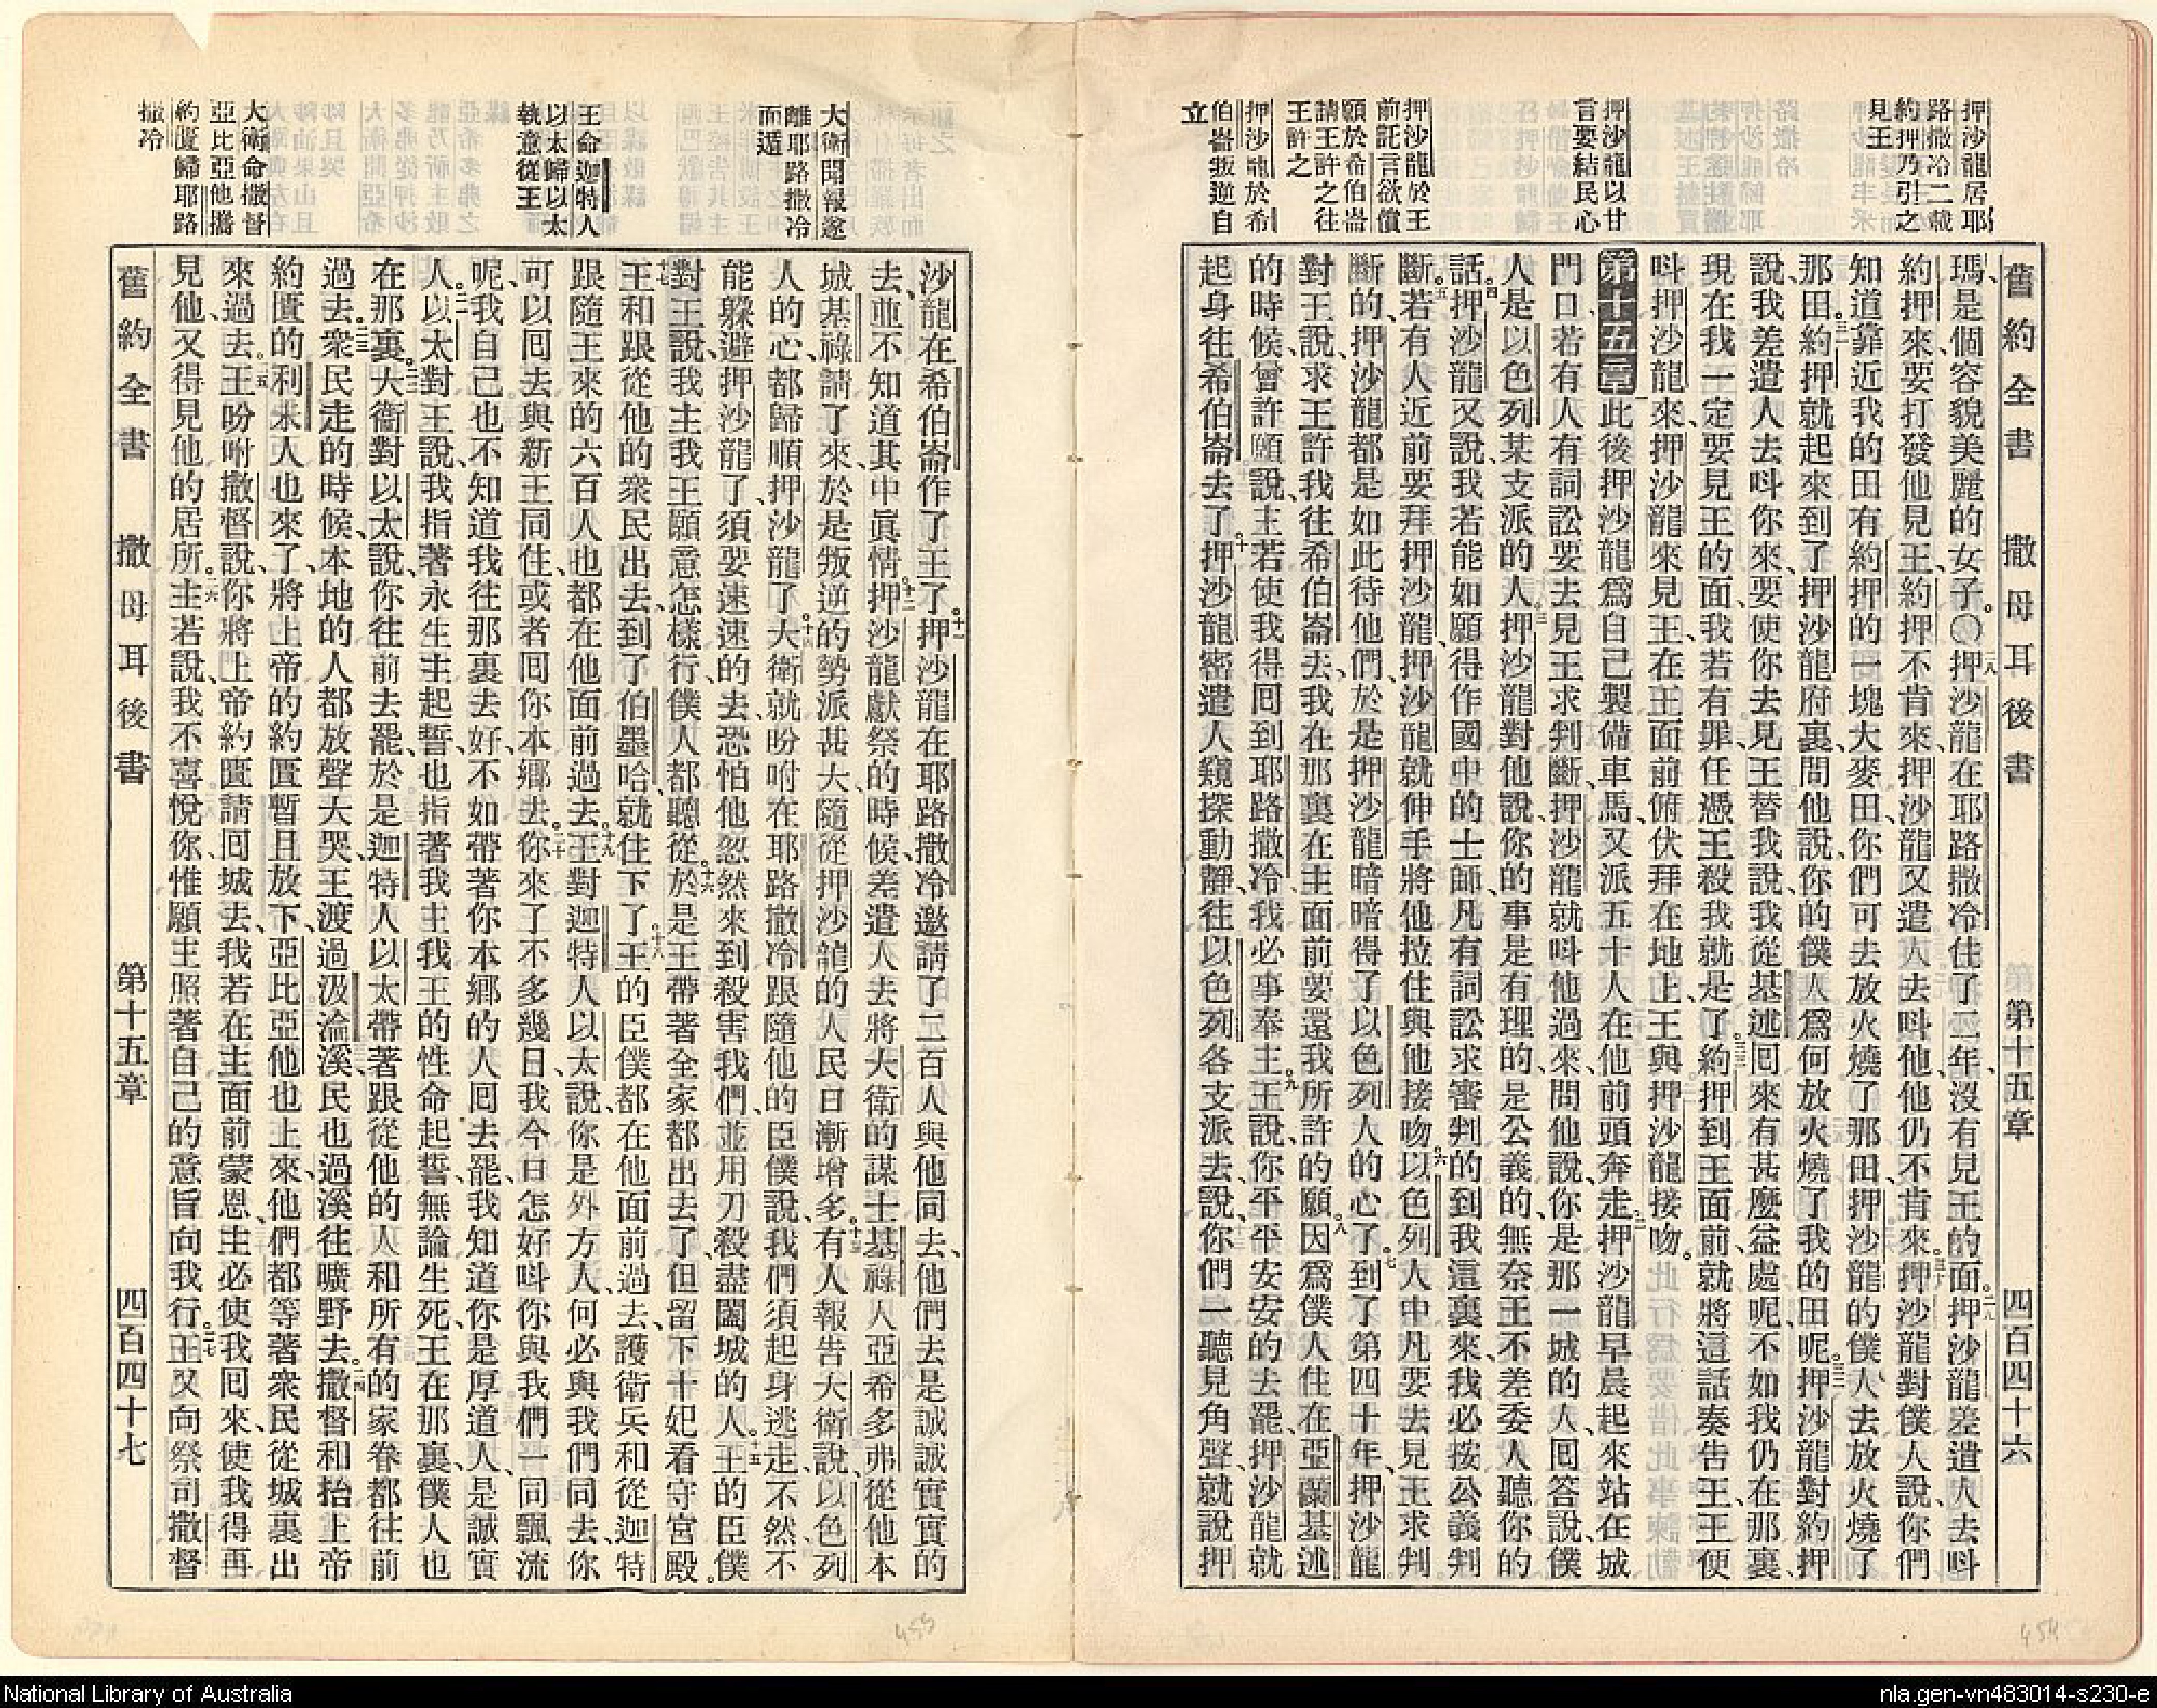 舊約全書 撒母耳後書 第十五章 四百四十六
押沙龍居耶
路撒冷二載
約押乃引之
見王
押沙龍以甘
言要結民心
押沙龍於王
前託言欲償
願於希伯崙
請王許之往
王許之
押沙龍於希
伯崙叛逆自
立
瑪、是個容貌美麗的女子。〇二八押沙龍在耶路撒冷住了二年、沒有見王的面。二九押沙龍差遣人去呌
約押來、要打發他見王、約押不肯來、押沙龍又遣人去呌他、他仍不肯來。三十押沙龍對僕人說、你們
知道靠近我的田、有約押的一塊大麥田、你們可去放火燒了那田、押沙龍的僕人去放火燒了
那田。三一約押就起來、到了押沙龍府裏、問他說、你的僕人爲何放火燒了我的田呢。三二押沙龍對約押
說、我差遣人去呌你來、要使你去見王、替我說、我從基述囘來有甚麽益處呢、不如我仍在那裏、
現在我一定要見王的面、我若有罪、任憑王殺我就是了。三三約押到王面前、就將這話奏吿王、王便
呌押沙龍來、押沙龍來見王、在王面前俯伏拜在地上、王與押沙龍接吻。
第十五章 一此後押沙龍爲自己製備車馬、又派五十人在他前頭奔走。二押沙龍早晨起來、站在城
門口、若有人有詞訟要去見王求判斷、押沙龍就呌他過來、問他說、你是那一城的人、囘答說、僕
人是以色列某支派的人。三押沙龍對他說、你的事是有理的、是公義的、無奈王不差委人聽你的
話。四押沙龍又說、我若能如願、得作國中的士師、凡有詞訟求審判的、到我這裏來、我必按公義判
斷。五若有人近前要拜押沙龍、押沙龍就伸手將他拉住、與他接吻。六以色列人中凡要去見王求判
斷的、押沙龍都是如此待他們、於是押沙龍暗暗得了以色列人的心了。七到了第四十年、押沙龍
對王說、求王許我往希伯崙去、我在那裏在主面前要還我所許的願。八因爲僕人住在亞蘭基述
的時候、曾許願說、主若使我得囘到耶路撒冷、我必事奉主。九王說、你平平安安的去罷、押沙龍就
起身往希伯崙去了。十押沙龍密遣人窺探動靜、往以色列各支派去、說、你們一聽見角聲、就說押
大衛聞報遂
離耶路撒冷
而遁
王命迦特人
以太歸以太
執意從王
大衛命撒督
亞比亞他攜
約匱歸耶路
撒冷
沙龍在希伯崙作了王了。十一押沙龍在耶路撒冷邀請了二百人與他同去、他們去是誠誠實實的
去、並不知道其中眞情。十二押沙龍獻祭的時候、差遣人去將大衛的謀士基祿人亞希多弗從他本
城基祿請了來、於是叛逆的勢派甚大、隨從押沙龍的人民日漸增多。十三有人報告大衛說、以色列
人的心、都歸順押沙龍了。十四大衛就吩咐在耶路撒冷跟隨他的臣僕說、我們須起身逃走、不然不
能躲避押沙龍了、須要速速的去、恐怕他忽然來到殺害我們、並用刀殺盡闔城的人。十五王的臣僕
對王說、我主我王願意怎樣行、僕人都聽從。十六於是王帶著全家都出去了、但留下十妃看守宮殿。
十七王和跟從他的衆民出去、到了伯墨哈、就住下了。十八王的臣僕都在他面前過去、護衛兵和從迦特
跟隨王來的六百人、也都在他面前過去。十九王對迦特人以太說、你是外方人、何必與我們同去、你
可以囘去與新王同住、或者囘你本鄉去。二十你來了不多幾日、我今日怎好呌你與我們一同飄流
呢、我自己也不知道我往那裏去、好不如帶著你本鄉的人囘去罷、我知道你是厚道人、是誠實
人。二一以太對王說、我指著永生主起誓、也指著我主我王的性命起誓、無論生死、王在那裏、僕人也
在那裏。二二大衛對以太說、你往前去罷、於是迦特人以太帶著跟從他的人、和所有的家眷、都往前
過去。二三衆民走的時候、本地的人都放聲大哭、王渡過汲淪溪、民也過溪往曠野去。二四撒督和抬上帝
約匱的利未人也來了、將上帝的約匱暫且放下、亞比亞他也上來、他們都等著衆民從城裏出
來過去。二五王吩咐撒督說、你將上帝約匱請囘城去、我若在主面前蒙恩、主必使我囘來、使我得再
見他、又得見他的居所。二六主若說、我不喜悅你、惟願主照著自己的意旨向我行。二七王又向祭司撒督
舊約全書 撒母耳後書 第十五章 四百四十七
455
454
National Library of Australia
nla.gen-vn483014-s230-e